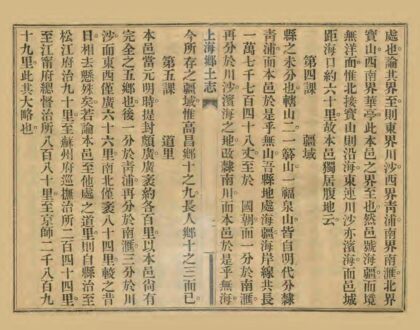 處也論其界至則東界川沙西界青浦南界南滙北界
寶山西南界華亭此本邑之界至也然邑號海疆而境
無洋面惟北接寶山則沿海東連川沙亦濱海而邑城
距海口約六十里故本邑獨居腹地云
第四課　疆域
縣之未分也轄山二一簳山一福泉山皆自明代分隸
青浦而本邑於是乎無山吾縣地處海疆海岸線共長
一萬七千七百四十八丈至於　國朝而一分於南滙
再分於川沙濱海之地改隸南川而本邑於是乎無海
上海鄉土志
今所存之疆域惟高昌鄉十之九長人鄉十之三而已
第五課　道里
本邑當元明時提封頗廣廣袤約各百里以本邑尙有
完全之五鄉也後一分於青浦再分於南滙三分於川
沙而東西僅廣六十六里南北僅袤八十四里較之昔
日相去懸殊矣若論本邑至他處之道里則自縣治至
松江府治九十里至蘇州府巡撫治所二百四十四里
至江甯府總督治所八百八十里至京師二千八百九
十九里此其大略也